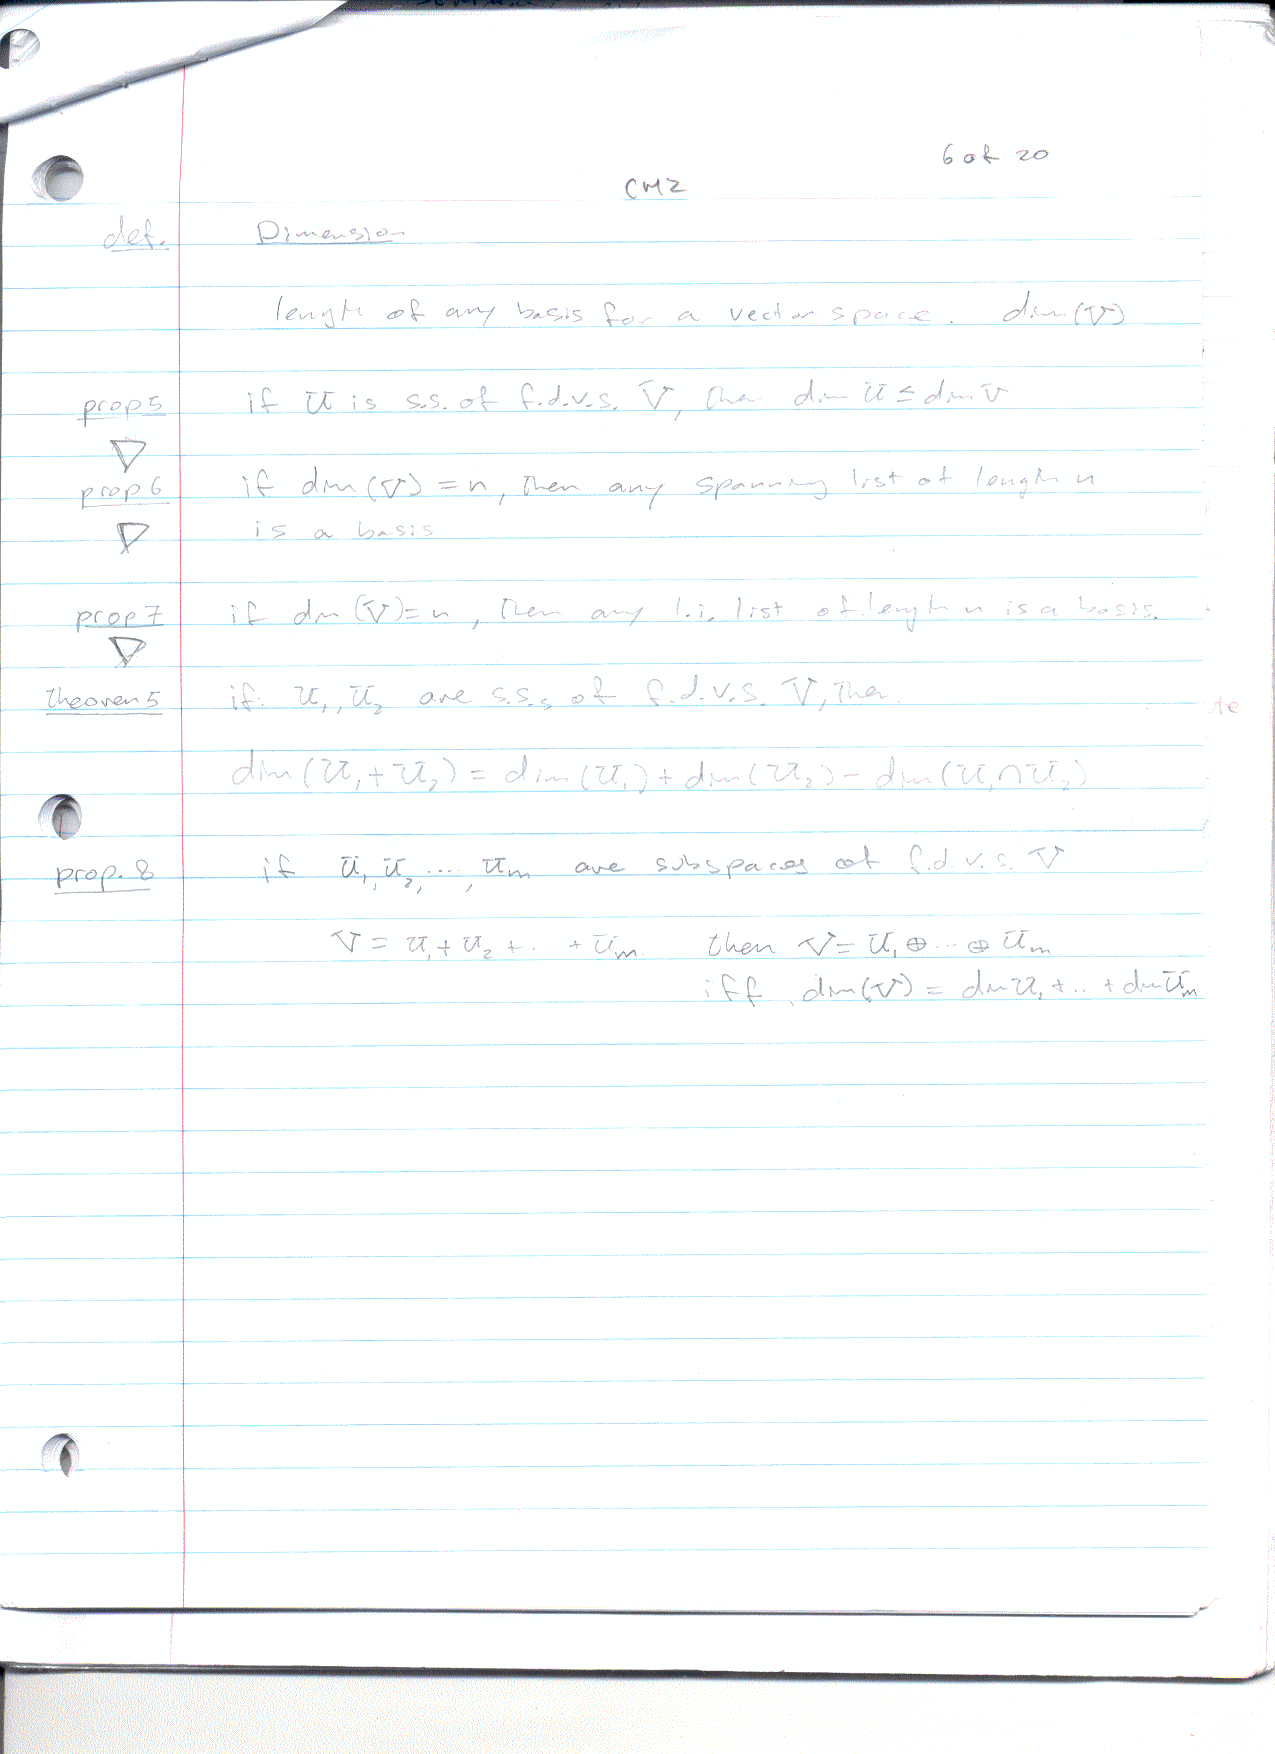 6 of 20
CH2
def. Dimension
length of any basis for a vector space. dim(V)
prop 5 if U is s.s. of f.d.v.s. V, then dim U ≤ dim V
prop 6 if dim(V) = n, then any spanning list of length n
is a basis
prop 7 if dim(V) = n, then any l.i. list of length n is a basis.
theorem 5 if U₁, U₂ are s.s.s of f.d.v.s. V, then
dim(U₁ + U₂) = dim(U₁) + dim(U₂) − dim(U₁ ∩ U₂)
prop. 8 if U₁, U₂, ...., Um are subspaces of f.d.v.s. V
V = U₁ + U₂ + ... + Um then V = U₁ ⊕ ... ⊕ Um
iff dim(V) = dim U₁ + .. + dim Um
te